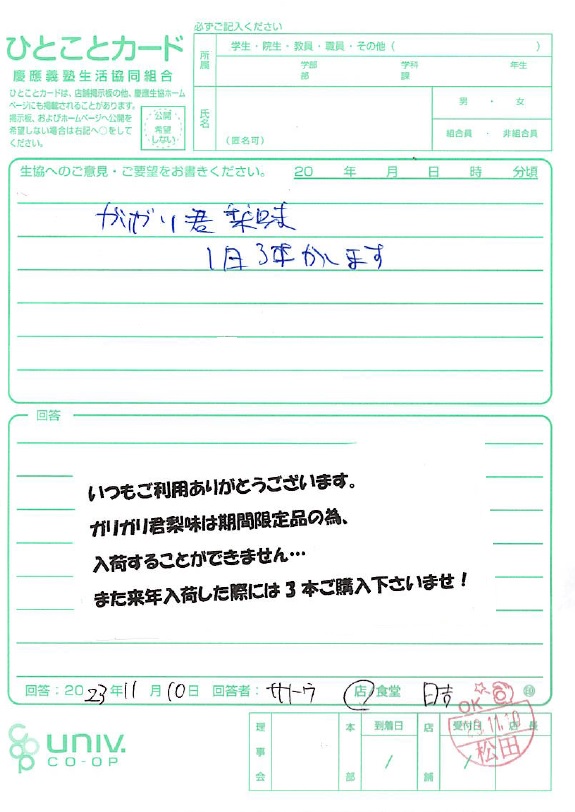 必ずご記入ください
ひとことカード
慶應義塾生活協同組合
ひとことカードは、店舗掲示板の他、慶應生協ホーム
ページにも掲載されることがあります。
掲示板、およびホームページへ公開を
希望しない場合は右記へ○をして
ください。
公開
希望
しない
所属
学生・院生・教員・職員・その他（　　　　）
学部 学科 年生
部 課
氏名
（匿名可）
男 ・ 女
組合員 ・ 非組合員
生協へのご意見・ご要望をお書きください。 20 年 月 日 時 分頃
ガリガリ君 梨味
1日3本かいます
回答
いつもご利用ありがとうございます。
ガリガリ君梨味は期間限定品の為、
入荷することができません…
また来年入荷した際には3本ご購入下さいませ！
回答：2023年11月10日 回答者：サトウ 店/食堂 日吉 印
univ.
CO-OP
理事会
本部
到着日
/
店舗
受付日
/
店長
OK
松田